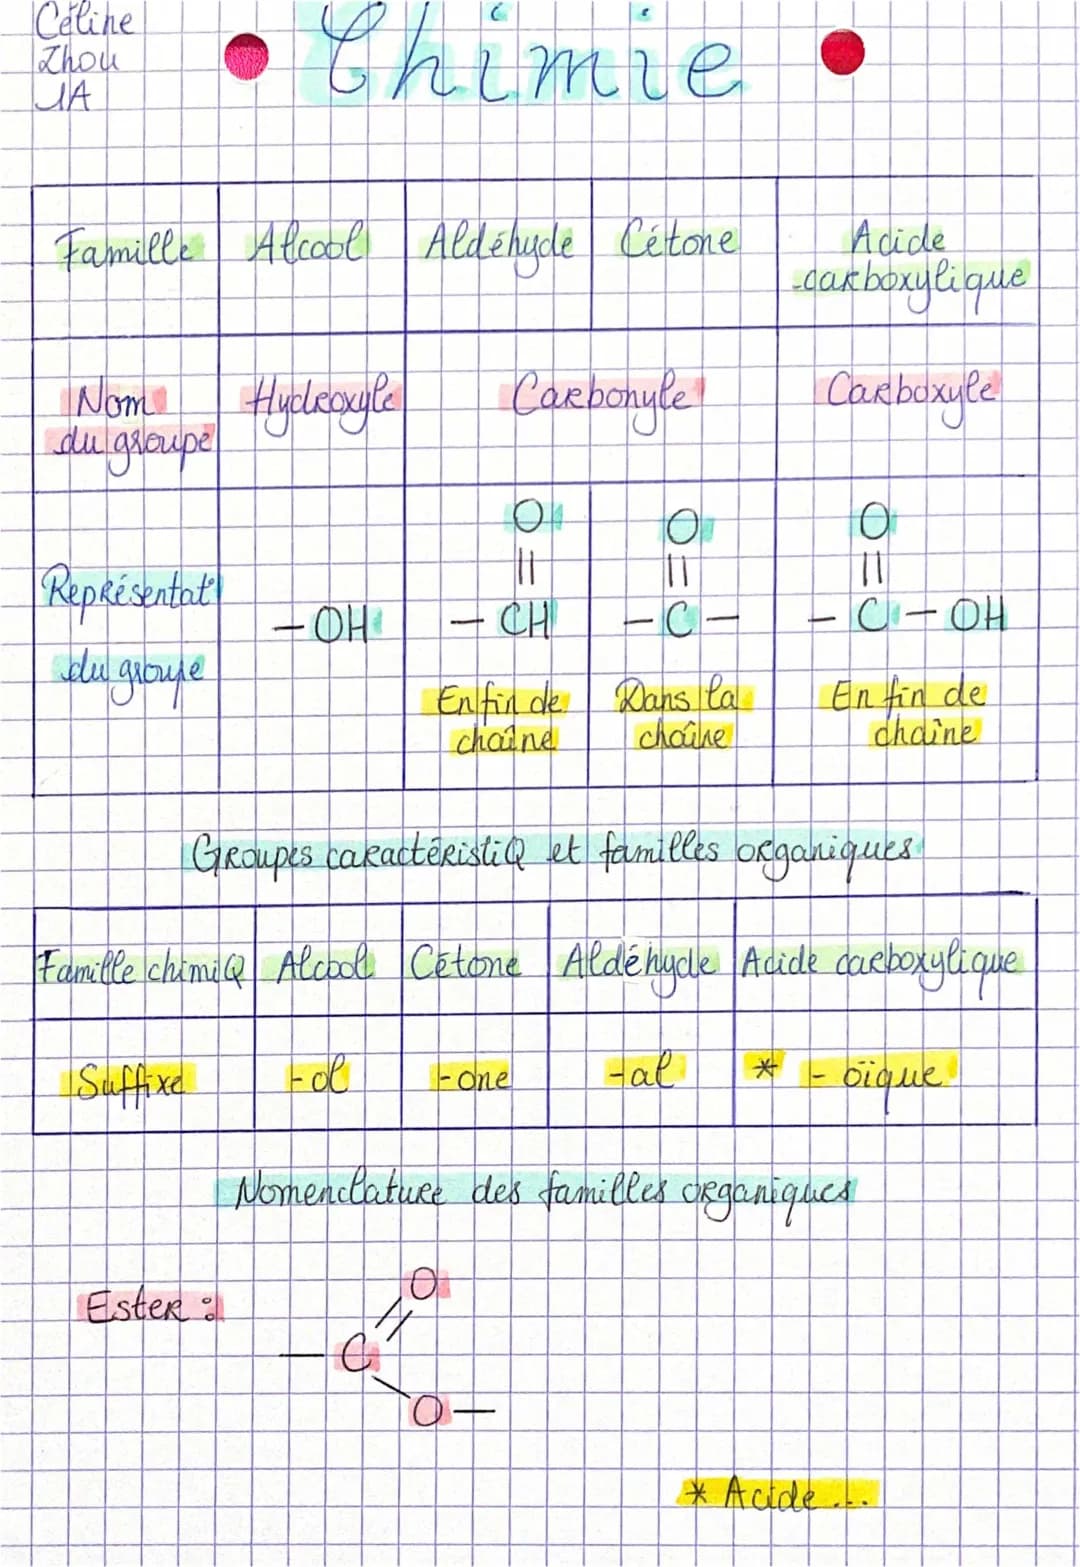 Céline
Zhou
1A
Chimie
Famille Alcool Aldéhyde Cétone Acide
carboxylique
Nom Hydroxyle Carbonyle Carboxyle
du groupe
O O O
|| || ||
Représentat°
— OH — CH — C — — C — OH
du groupe
En fin de Dans la En fin de
chaîne chaîne chaîne
Groupes caractéristiQ et familles organiques
Famille chimiQ Alcool Cétone Aldéhyde Acide carboxylique
Suffixe -ol -one -al * -oïque
Nomenclature des familles organiques
O
Ester :
— C
O —
* Acide ...